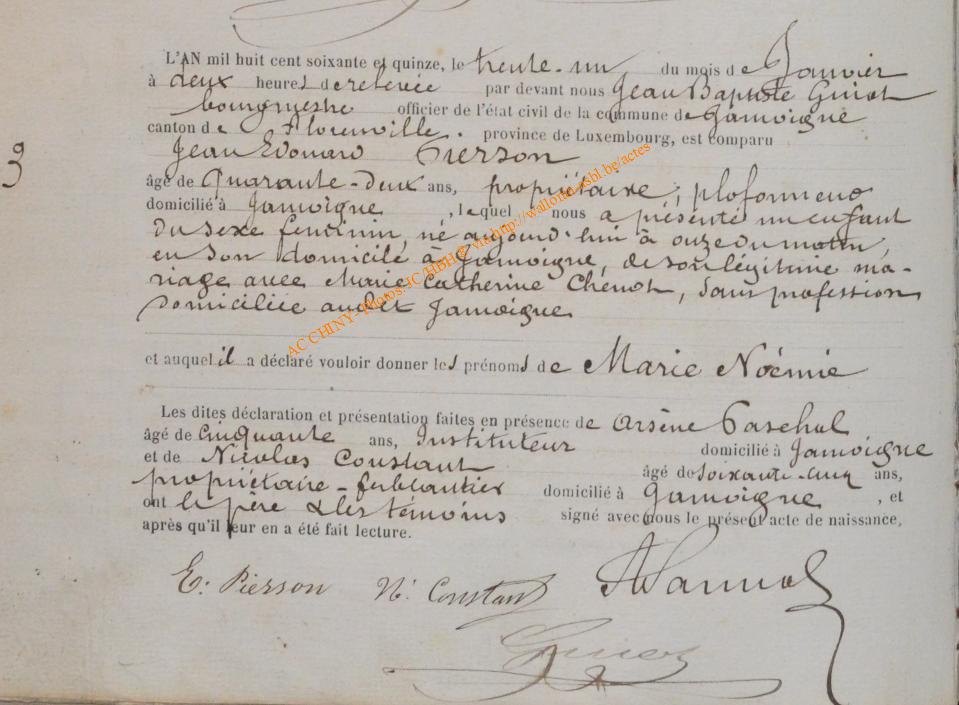 L'AN mil huit cent soixante et quinze, le trente-un du mois de Janvier
à deux heures de relevée par devant nous Jean Baptiste Guiot
bourgmestre officier de l'état civil de la commune de Jamoigne
canton de Florenville. province de Luxembourg, est comparu
Jean Edouard Pierson
9
âgé de Quarante-deux ans, propriétaire, plafonneur
domicilié à Jamoigne, lequel nous a présenté un enfant
du sexe féminin, né aujourd'hui à onze du matin,
en son domicile à Jamoigne, de son légitime ma-
riage avec Marie Catherine Chenot, sans profession
domiciliée audit Jamoigne
AC CHINY - Photos JC/HBH@ via http://wallonia-asbl.be/actes
et auquel il a déclaré vouloir donner les prénoms de Marie Noémie
Les dites déclaration et présentation faites en présence de Arsène
âgé de Cinquante ans, Instituteur domicilié à Jamoigne
et de Nicolas Constant âgé de soixante-cinq ans,
propriétaire-ferblantier domicilié à Jamoigne, et
ont le père & les témoins signé avec nous le présent acte de naissance,
après qu'il leur en a été fait lecture.
E. Pierson N. Constant
Guiot